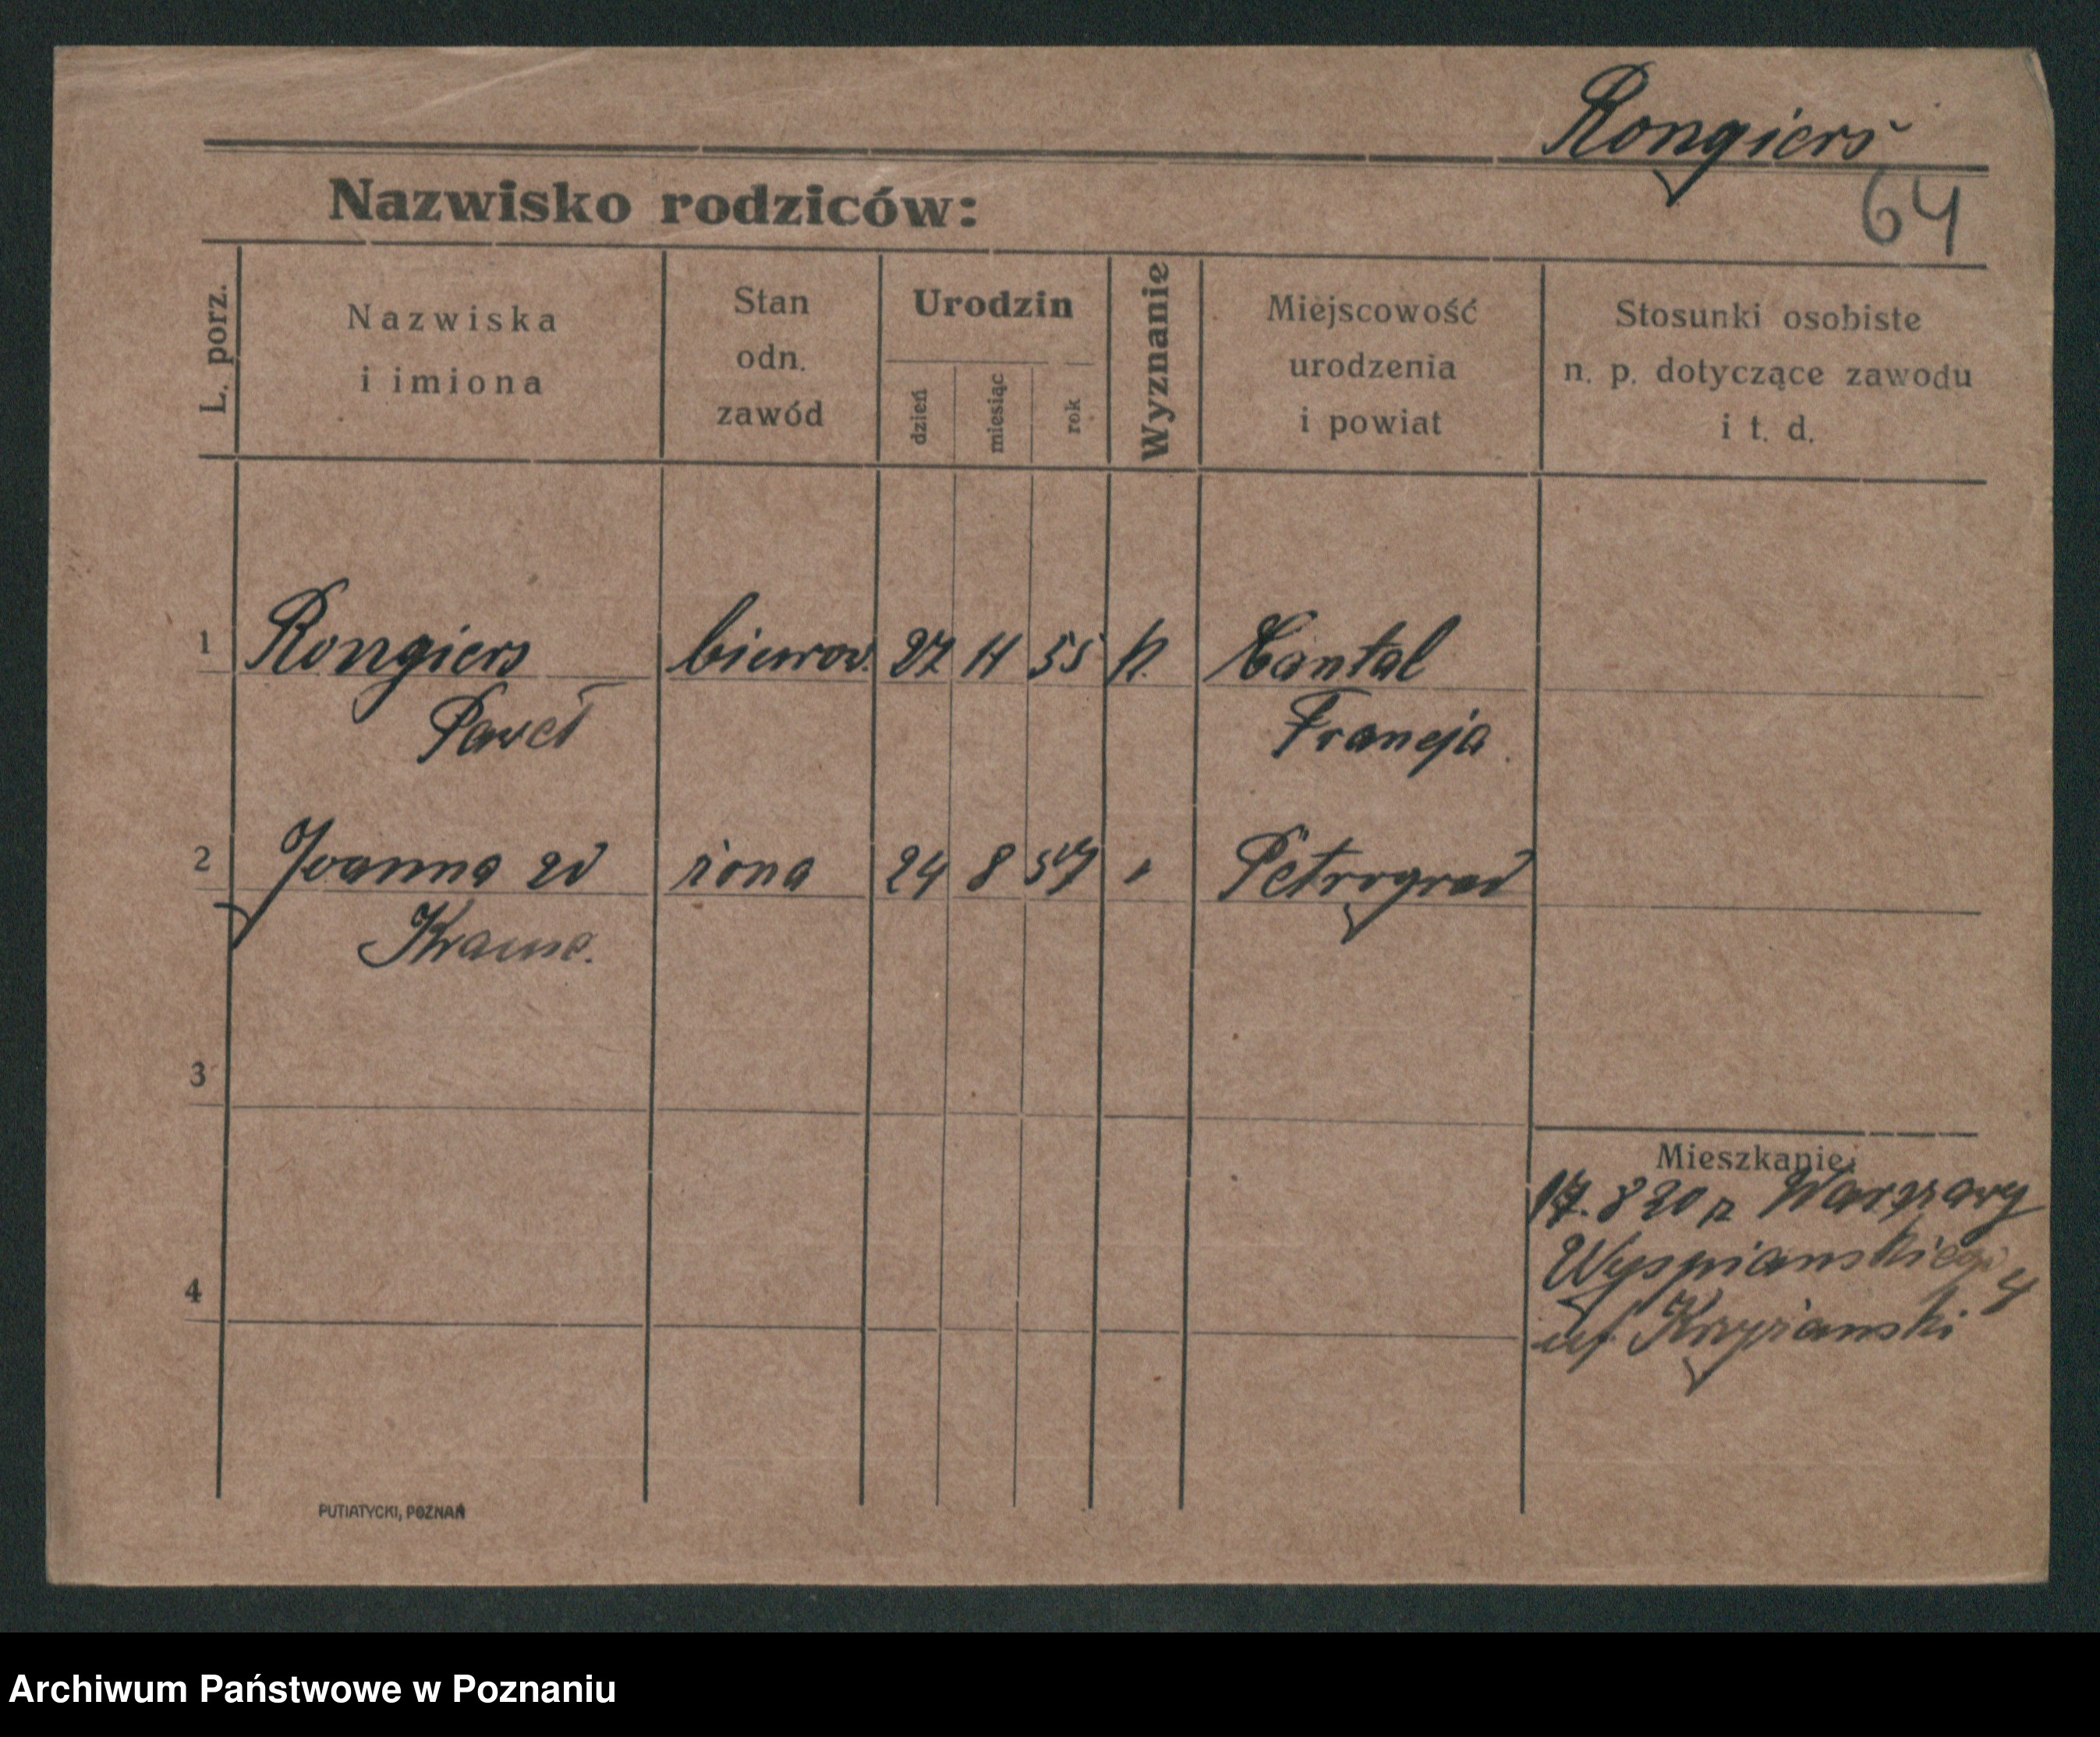 Rongiers
64
Nazwisko rodziców:
L. porz.
Nazwiska
i imiona
Stan
odn.
zawód
Urodzin
dzień
miesiąc
rok
Wyznanie
Miejscowość
urodzenia
i powiat
Stosunki osobiste
n. p. dotyczące zawodu
i t. d.
1 Rongiers biurow. 27 11 55 k. Cantal
Paweł Francja.
2 Joanna zd żona 24 8 57 " Petrograd
Krause.
3
4
Mieszkanie:
17. 8 20 z Warszawy
Wyspianskiego 4
uf Krzyżanski.
PUTIATYCKI, POZNAŃ
Archiwum Państwowe w Poznaniu